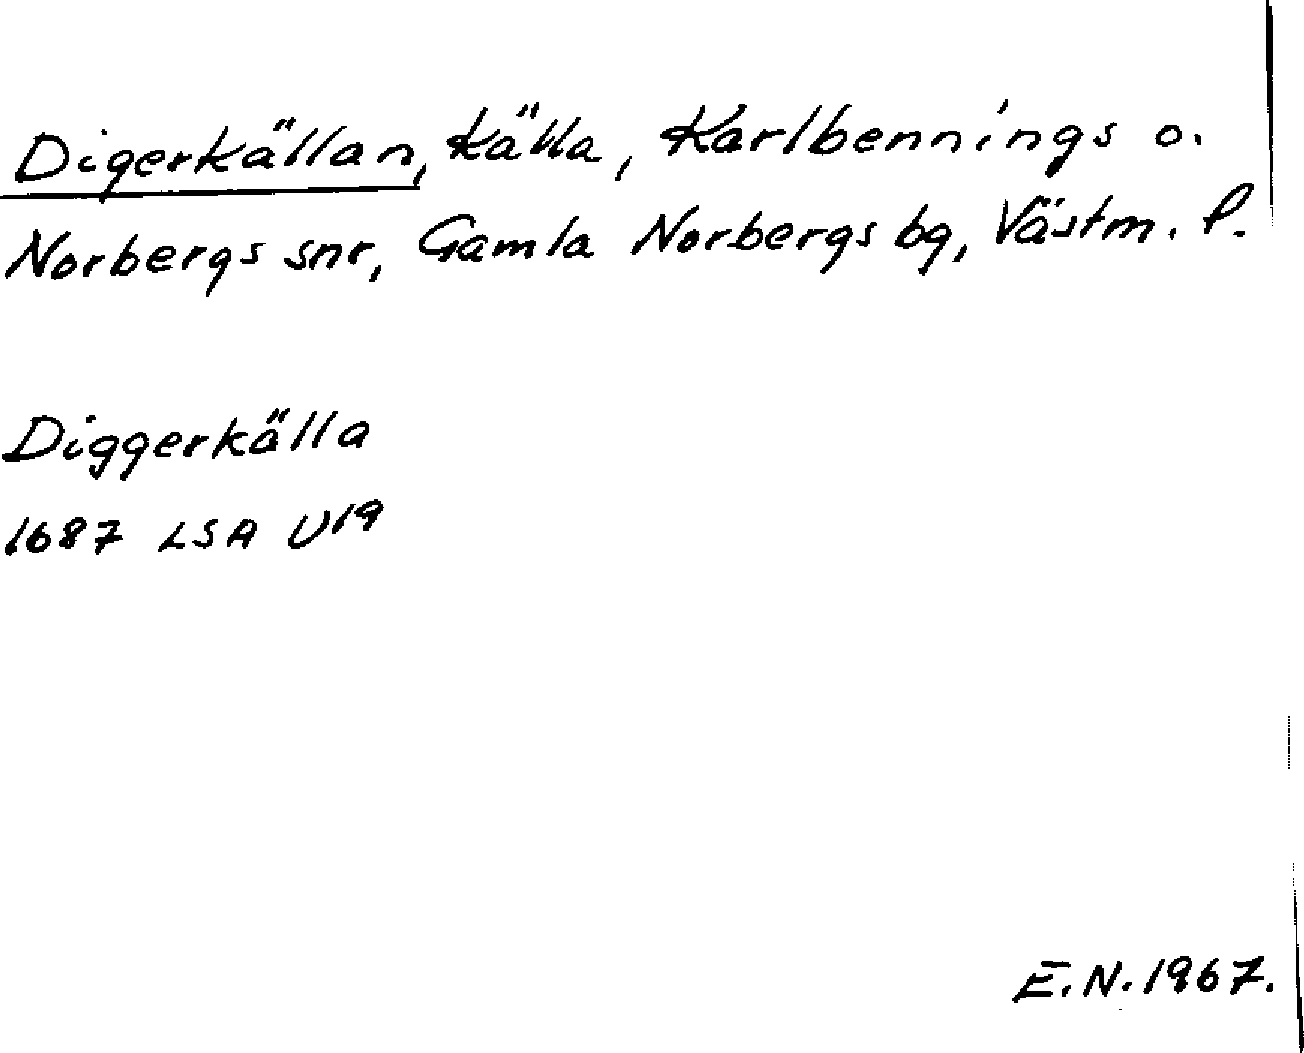 Digerkällan, källa, Karlbennings o.
Norbergs snr, Gamla Norbergs bg, Västm. l.
Diggerkälla
1687 LSA U19
E.N. 1967.